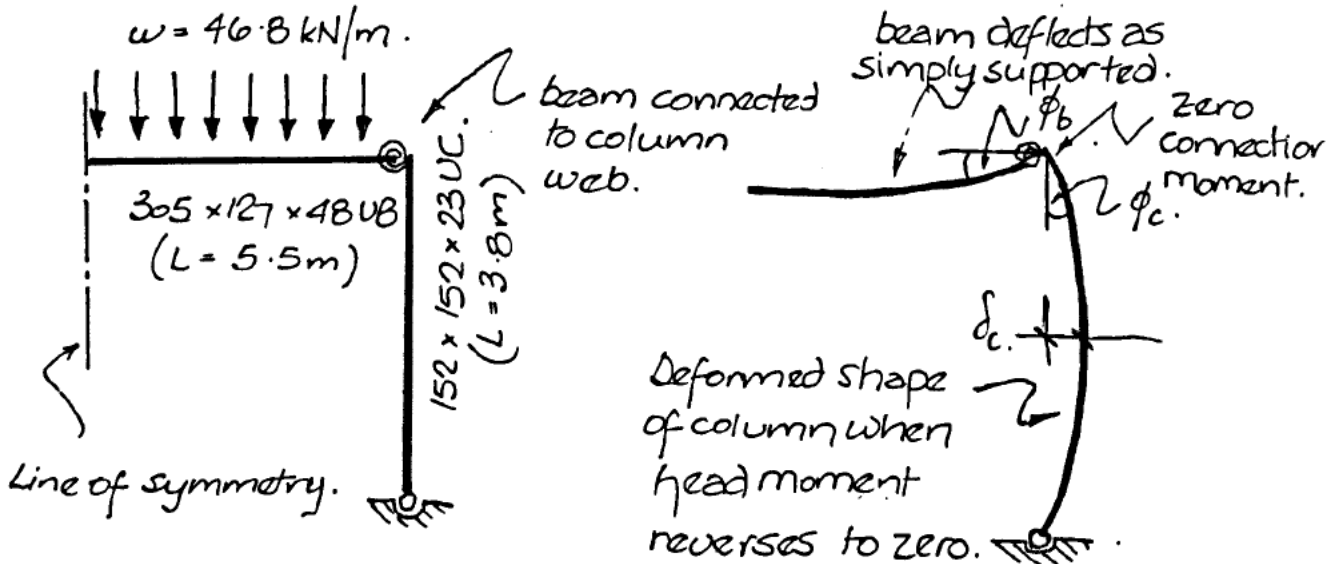 w = 46.8 kN/m.
beam connected
to column
web.
305 x 127 x 48 UB
(L = 5.5m)
152 x 152 x 23 UC.
(L = 3.8m)
Line of symmetry.
beam deflects as
simply supported.
ϕb
zero
connection
moment.
ϕc.
δc.
Deformed shape
of column when
head moment
reverses to zero.